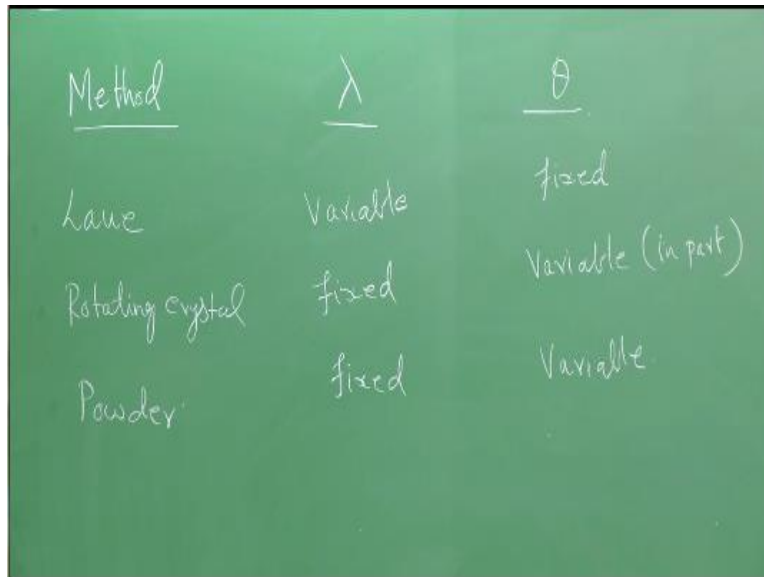 Method λ θ
Laue Variable fixed
Rotating crystal fixed Variable (in part)
Powder fixed Variable